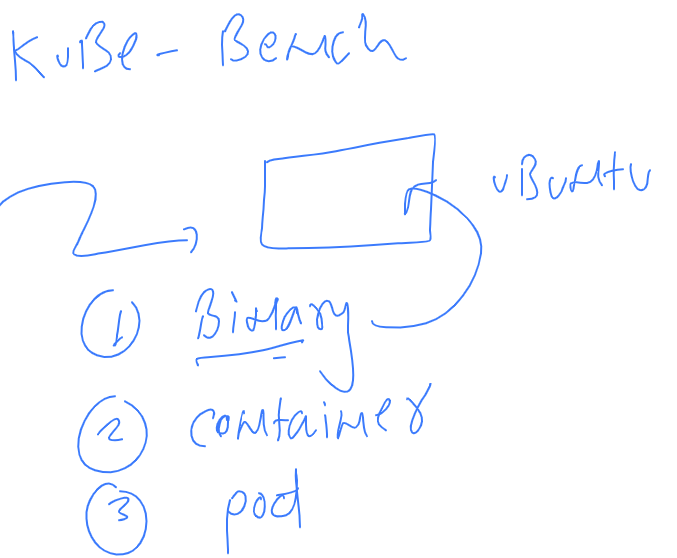 KuBe - Bench
uBuntu
1 Binary
2 container
3 pod